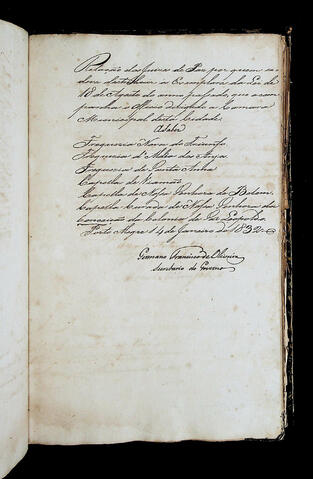 Relação dos Juizes de Paz por quem se
deve destribuir os Exemplares da Lei de
18 de Agosto do anno passado, que acom
panha o Officio dirigido a Camara
Municipal desta Cidade.
Asaber
Freguezia Nova do Triunfo
Freguezia d'Aldea dos Anjos
Freguezia de Santa Anna
Capella de Viamão
Capella de Nossa Senhora de Belem
Capella Curada de Nossa Senhora da
Conceição da Colonia de São Leopoldo
Porto Alegre 14 de Janeiro de 1832
Germano Francisco de Oliveira
Secretario do Governo